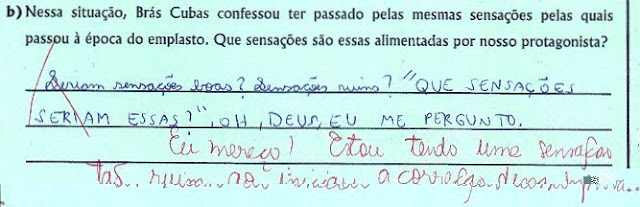 b) Nessa situação, Brás Cubas confessou ter passado pelas mesmas sensações pelas quais
passou à época do emplasto. Que sensações são essas alimentadas por nosso protagonista?
Seriam sensações boas? Sensações ruins? "QUE SENSAÇÕES
SERIAM ESSAS?", OH, DEUS, EU ME PERGUNTO.
Eu mereço! Estou tendo uma sensação
tão.. ruim.. ao iniciar a correção